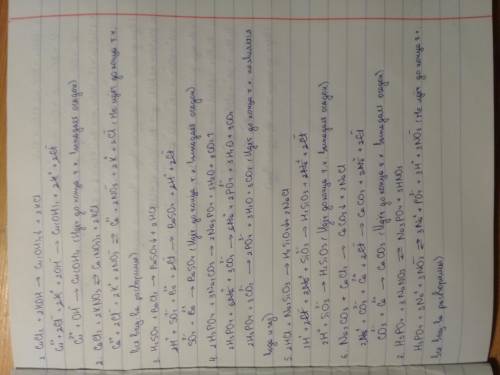 1. CuCl₂ + 2KOH → Cu(OH)₂↓ + 2KCl
Cu²⁺ + 2Cl⁻ + 2K⁺ + 2OH⁻ → Cu(OH)₂ + 2K⁺ + 2Cl⁻
Cu²⁺ + OH⁻ → Cu(OH)₂ (Идёт до конца т.к. выпадает осадок)
2. CaCl₂ + 2KNO₃ ⇄ Ca(NO₃)₂ + 2KCl
Ca²⁺ + 2Cl⁻ + 2K⁺ + 2NO₃⁻ ⇄ Ca²⁺ + 2NO₃⁻ + 2K⁺ + 2Cl⁻ (Не идёт до конца т.к.
все вещ. ва растворимы)
3. H₂SO₄ + BaCl₂ → BaSO₄↓ + 2HCl
2H⁺ + SO₄²⁻ + Ba²⁺ + 2Cl⁻ → BaSO₄ + 2H⁺ + 2Cl⁻
SO₄²⁻ + Ba²⁺ → BaSO₄ (Идёт до конца т.к. выпадает осадок)
4. 2H₃PO₄ + 3Na₂CO₃ → 2Na₃PO₄ + 3H₂O + 3CO₂↑
2H₃PO₄ + 3CO₃²⁻ → 2PO₄³⁻ + 3H₂O + 3CO₂ (Идёт до конца т.к. появляется
вода и газ)
5. 2HCl + Na₂SiO₃ → H₂SiO₃↓ + 2NaCl
2H⁺ + 2Cl⁻ + 2Na⁺ + SiO₃²⁻ → H₂SiO₃ + 2Na⁺ + 2Cl⁻
2H⁺ + SiO₃²⁻ → H₂SiO₃ (Идёт до конца т.к. выпадает осадок)
6. Na₂CO₃ + CaCl₂ → CaCO₃↓ + 2NaCl
2Na⁺ + CO₃²⁻ + Ca²⁺ + 2Cl⁻ → CaCO₃ + 2Na⁺ + 2Cl⁻
CO₃²⁻ + Ca²⁺ → CaCO₃ (Идёт до конца т.к. выпадает осадок)
H₃PO₄ + 3NaNO₃ ⇄ Na₃PO₄ + 3HNO₃
H₃PO₄ + 3Na⁺ + 3NO₃⁻ ⇄ 3Na⁺ + PO₄³⁻ + 3H⁺ + 3NO₃⁻ (Не идёт до конца т.к.
все вещ. ва растворимы)